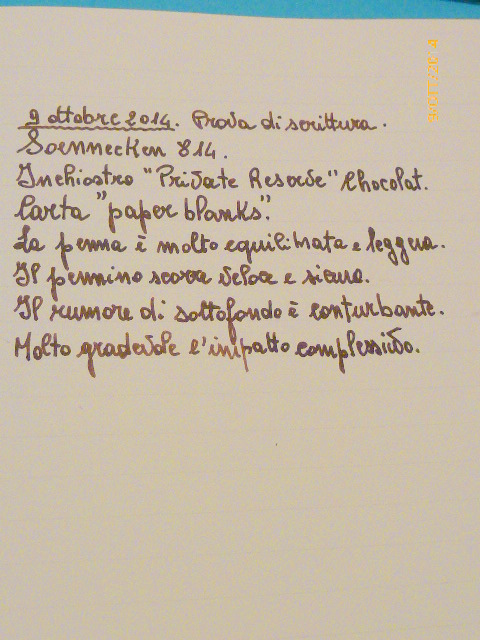 9 ottobre 2014. Prova di scrittura.
Soennecken 814.
Inchiostro "Private Reserve" Chocolat.
Carta "paper blanks".
La penna è molto equilibrata e leggera.
Il pennino scorre veloce e sicuro.
Il rumore di sottofondo è conturbante.
Molto gradevole l'impatto complessivo.